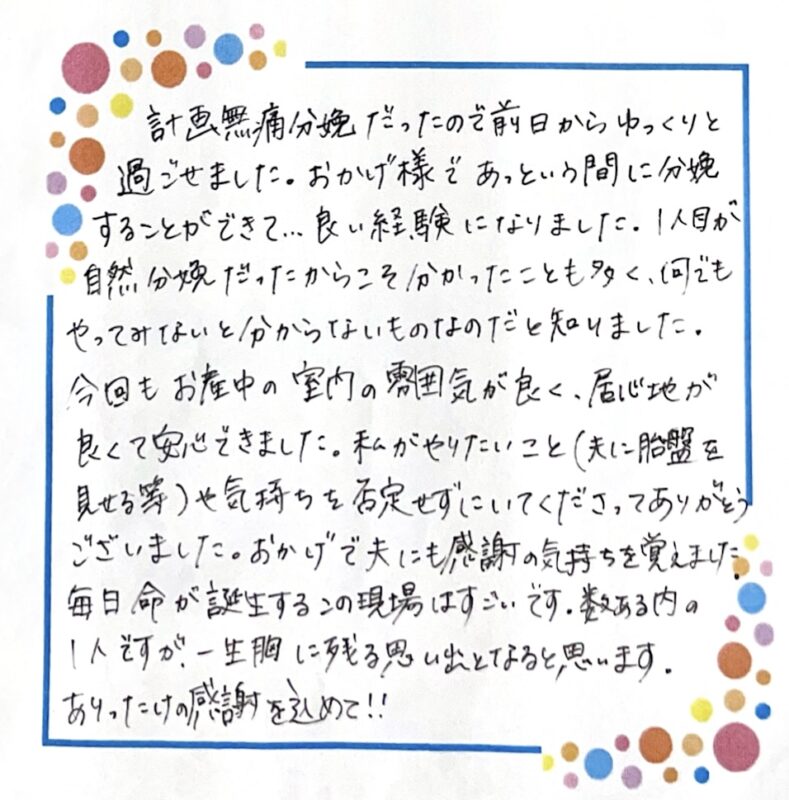 計画無痛分娩だったので前日からゆっくりと
過ごせました。おかげ様であっという間に分娩
することができて…良い経験になりました。1人目が
自然分娩だったからこそ分かったことも多く、何でも
やってみないと分からないものなのだと知りました。
今回もお産中の室内の雰囲気が良く、居心地が
良くて安心できました。私がやりたいこと(夫に胎盤を
見せる等)や気持ちを否定せずにいてくださってありがとう
ございました。おかげで夫にも感謝の気持ちを覚えました。
毎日命が誕生するこの現場はすごいです。数ある内の
1人ですが、一生胸に残る思い出となると思います。
ありったけの感謝を込めて!!